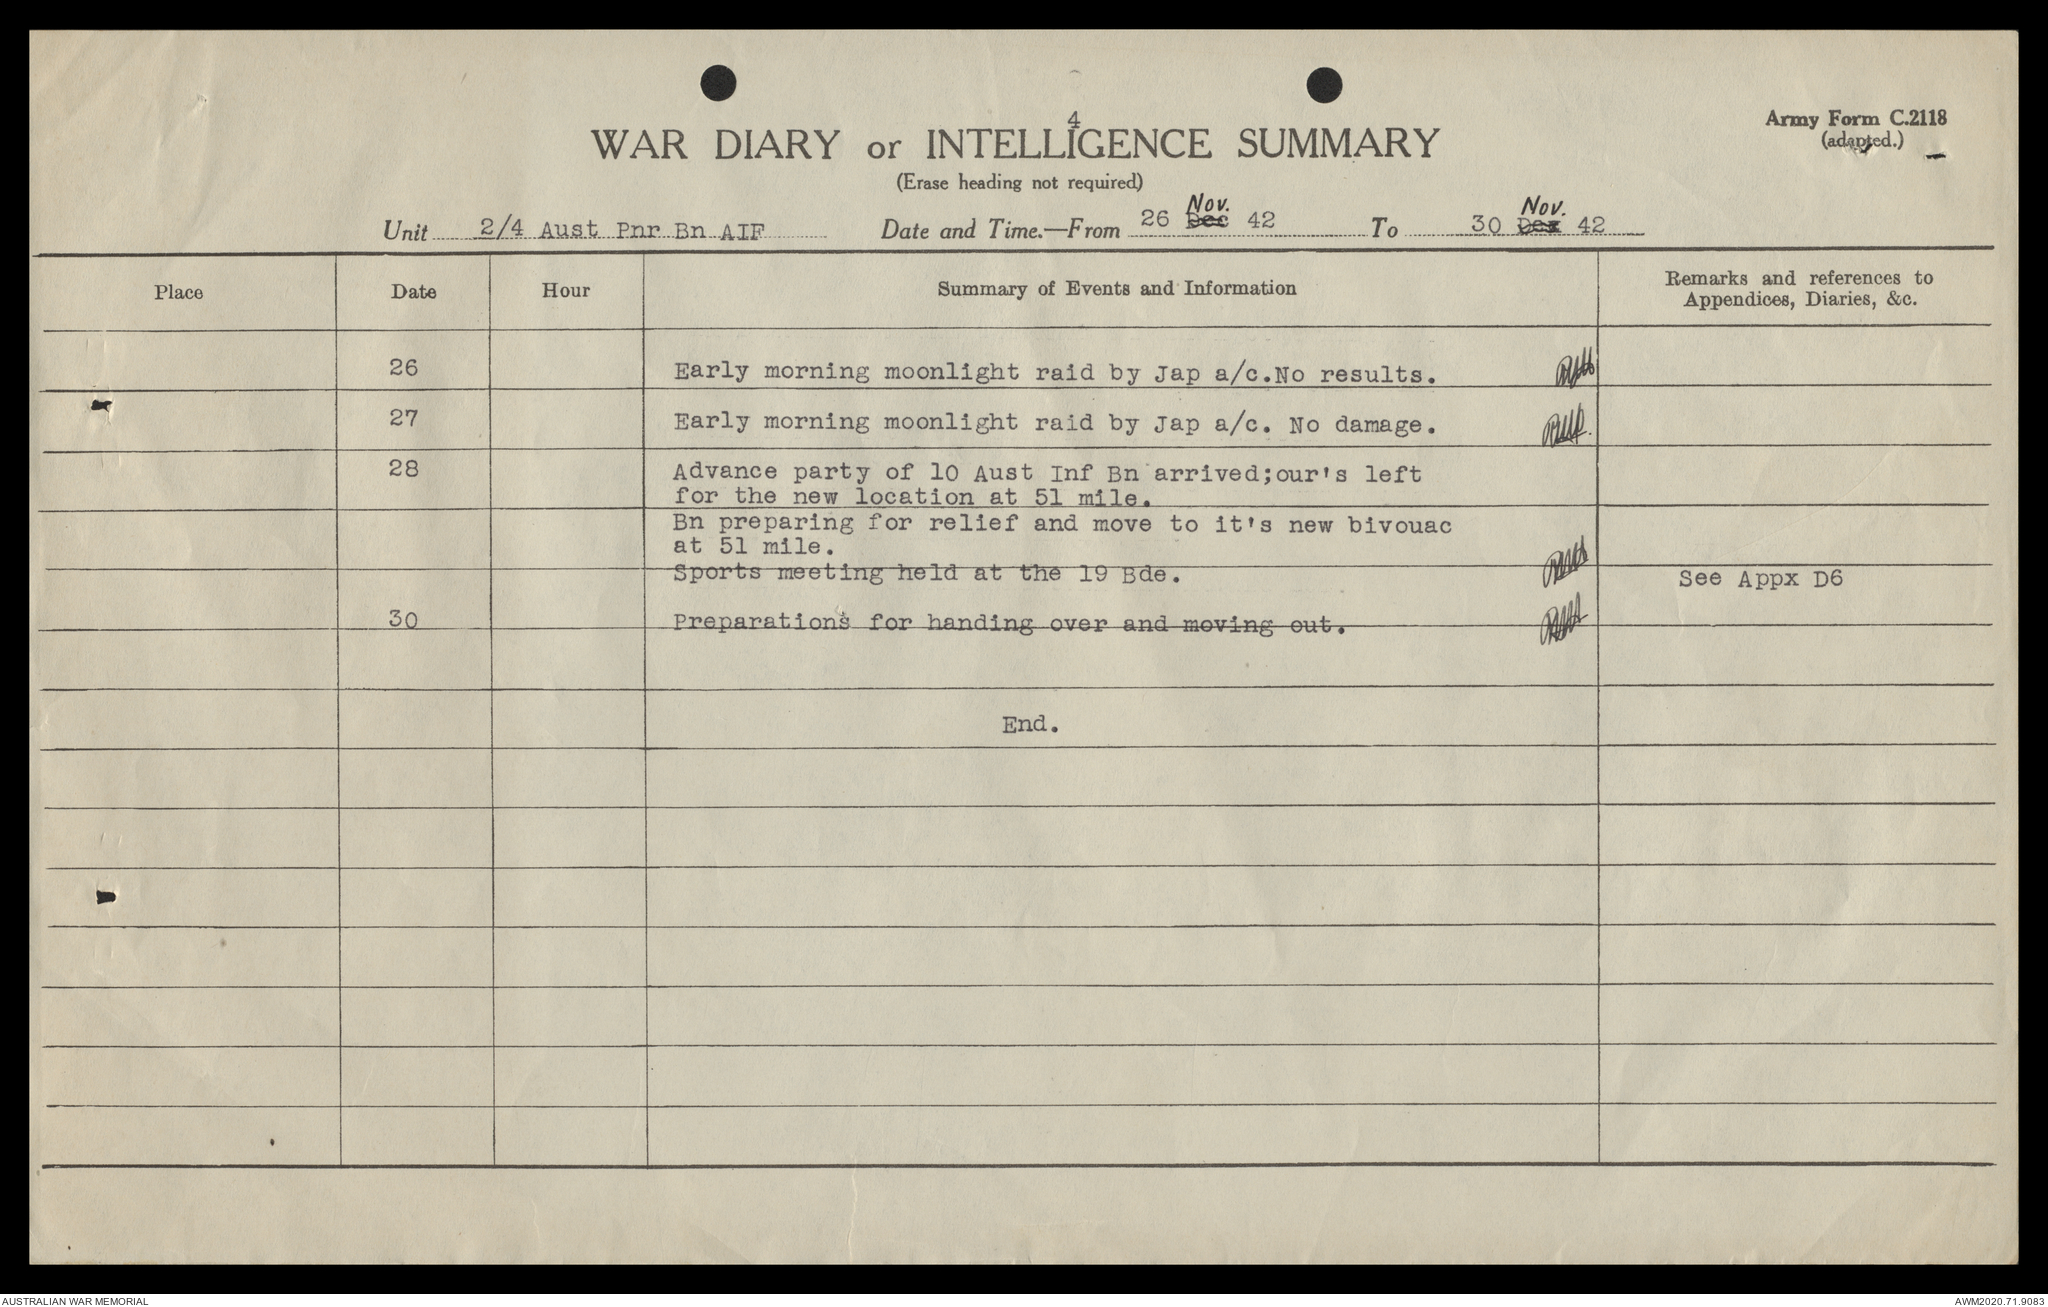 4
WAR DIARY or INTELLIGENCE SUMMARY
(Erase heading not required)
Army Form C.2118
(adapted.)
Unit 2/4 Aust Pnr Bn AIF Date and Time.—From 26 Dec Nov. 42 To 30 Dec Nov. 42
Place Date Hour Summary of Events and Information Remarks and references to
Appendices, Diaries, &c.
26 Early morning moonlight raid by Jap a/c.No results.
27 Early morning moonlight raid by Jap a/c. No damage.
28 Advance party of 10 Aust Inf Bn arrived;our's left
for the new location at 51 mile.
Bn preparing for relief and move to it's new bivouac
at 51 mile.
Sports meeting held at the 19 Bde. See Appx D6
30 Preparations for handing over and moving out.
End.
AUSTRALIAN WAR MEMORIAL AWM2020.71.9083